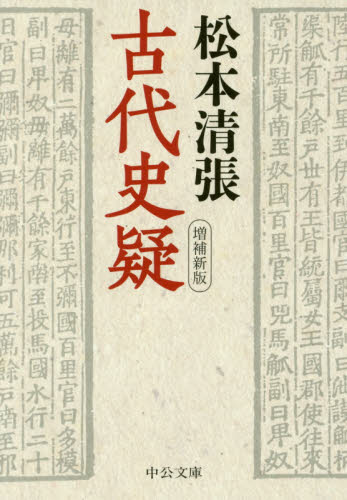 松本清張
古代史疑
増補新版
陸行五百里到伊都國官曰爾支副曰
渠觚有千餘戸世有王皆統屬女王國郡使往來
常所駐東南至奴國百里官曰兕馬觚副曰卑奴
毋離有二萬餘戸東行至不彌國百里官曰多模
副曰卑奴毋離有千餘家南至投馬國水行二十
日官曰彌彌副曰彌彌那利可五萬餘戸南至
中公文庫